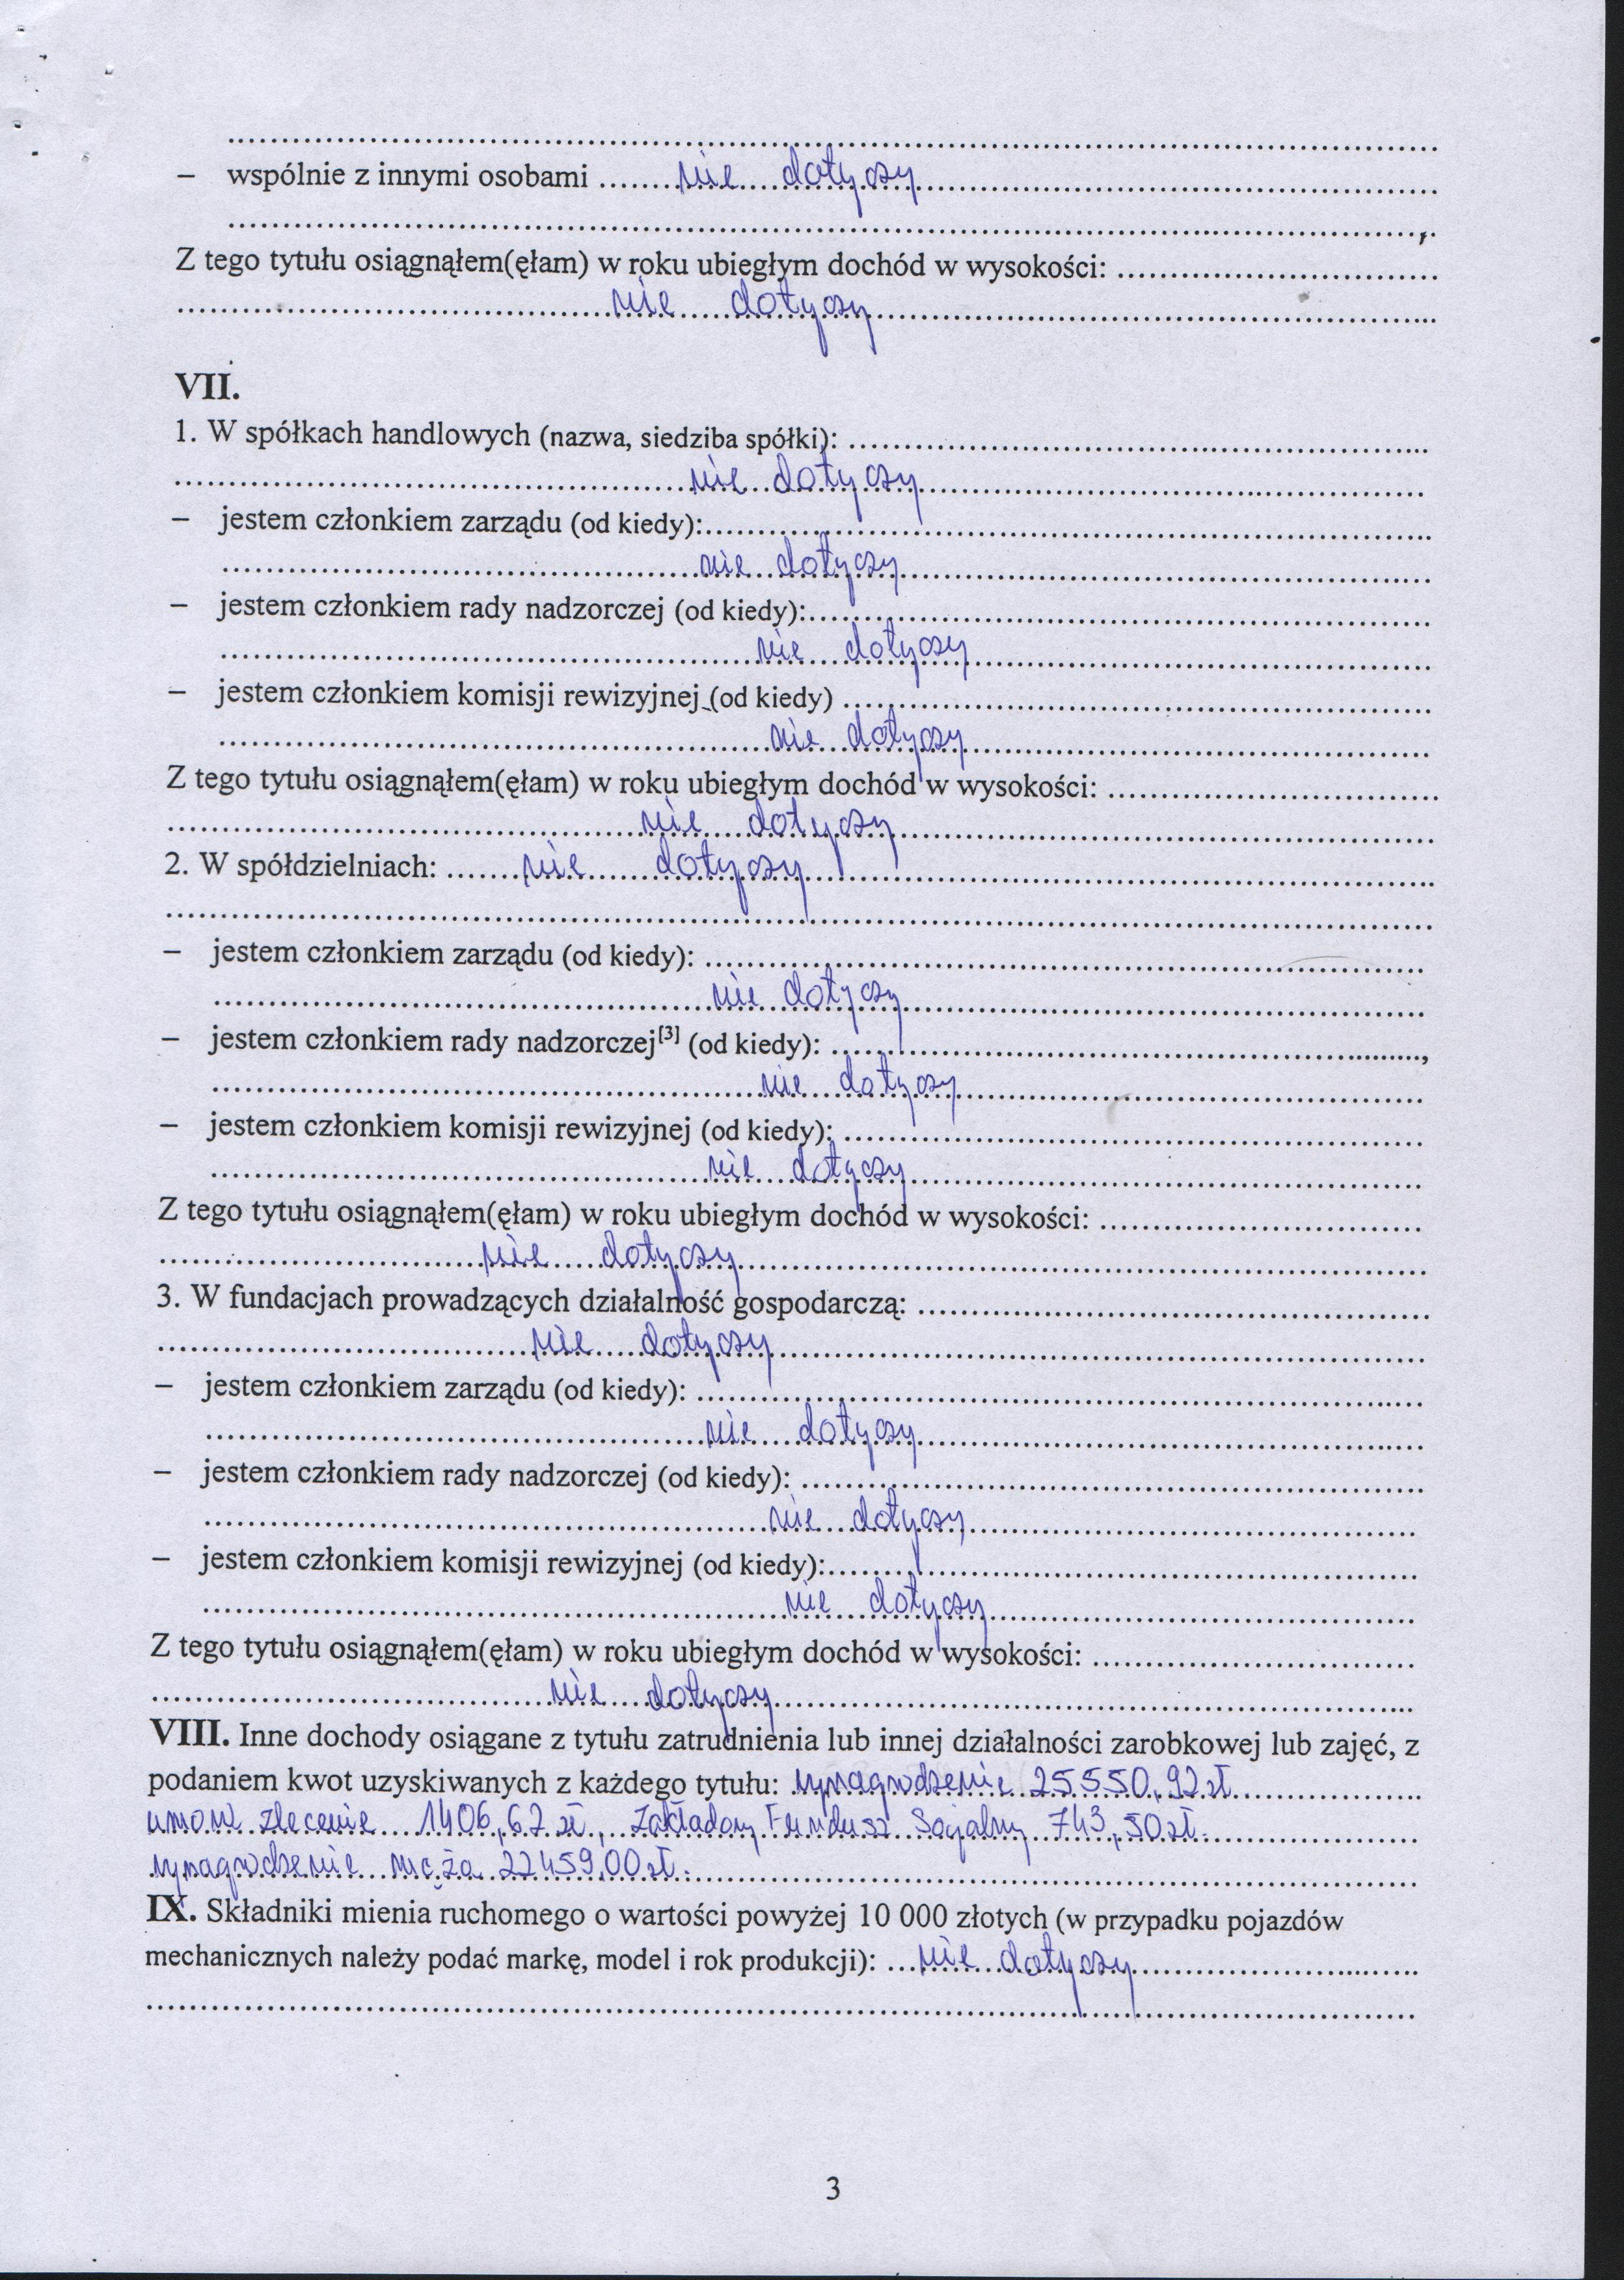 – wspólnie z innymi osobami ....... nie dotyczy
Z tego tytułu osiągnąłem(ęłam) w roku ubiegłym dochód w wysokości: .......
nie dotyczy
VII.
1. W spółkach handlowych (nazwa, siedziba spółki): .......
nie dotyczy
– jestem członkiem zarządu (od kiedy):.......
nie dotyczy
– jestem członkiem rady nadzorczej (od kiedy):.......
nie dotyczy
– jestem członkiem komisji rewizyjnej (od kiedy) .......
nie dotyczy
Z tego tytułu osiągnąłem(ęłam) w roku ubiegłym dochód w wysokości: .......
nie dotyczy
2. W spółdzielniach: ....... nie dotyczy
– jestem członkiem zarządu (od kiedy): .......
nie dotyczy
– jestem członkiem rady nadzorczej[3] (od kiedy): .......,
nie dotyczy
– jestem członkiem komisji rewizyjnej (od kiedy): .......
nie dotyczy
Z tego tytułu osiągnąłem(ęłam) w roku ubiegłym dochód w wysokości: .......
nie dotyczy
3. W fundacjach prowadzących działalność gospodarczą: .......
nie dotyczy
– jestem członkiem zarządu (od kiedy): .......
nie dotyczy
– jestem członkiem rady nadzorczej (od kiedy): .......
nie dotyczy
– jestem członkiem komisji rewizyjnej (od kiedy):.......
nie dotyczy
Z tego tytułu osiągnąłem(ęłam) w roku ubiegłym dochód w wysokości: .......
nie dotyczy
VIII. Inne dochody osiągane z tytułu zatrudnienia lub innej działalności zarobkowej lub zajęć, z
podaniem kwot uzyskiwanych z każdego tytułu: wynagrodzenie 25550,92 zł
umowa zlecenie 1406,62 zł, Zakładowy Fundusz Socjalny 743,50 zł.
wynagrodzenie męża 22459,00 zł.
IX. Składniki mienia ruchomego o wartości powyżej 10 000 złotych (w przypadku pojazdów
mechanicznych należy podać markę, model i rok produkcji): ... nie dotyczy
3